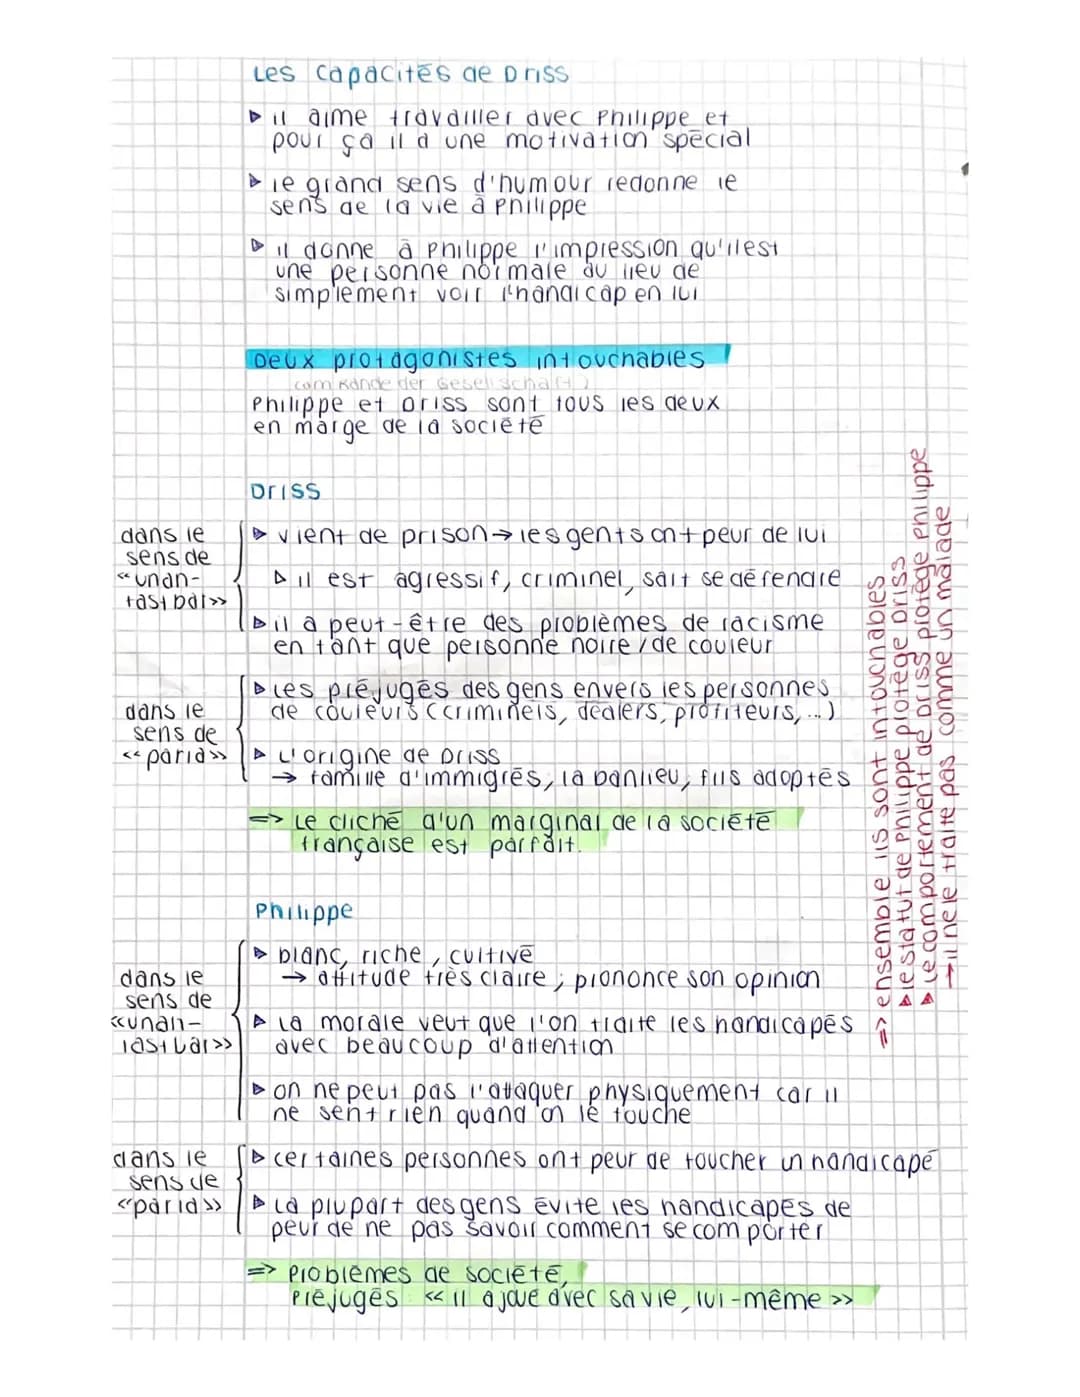 Les Capacités de Driss
▷ il aime travailler avec Philippe et
pour ça il a une motivation spécial
▷ le grand sens d'humour redonne le
sens de la vie à Philippe
▷ il donne à Philippe l'impression qu'il est
une personne normale au lieu de
simplement voir l'handicap en lui
Deux protagonistes intouchables
(am Rande der Gesellschaft)
Philippe et Driss sont tous les deux
en marge de la société
Driss
dans le
sens de
«unan-
tastbar»
▷ vient de prison → les gents ont peur de lui
▷ il est agressif, criminel, sait se défendre
▷ il a peut-être des problèmes de racisme
en tant que personne noire / de couleur
dans le
sens de
«paria»
▷ Les préjugés des gens envers les personnes
de couleurs (criminels, dealers, profiteurs, ...)
▷ L'origine de Driss
→ famille d'immigrés, la banlieu, fils adoptés
=> Le cliché d'un marginal de la société
française est parfait.
Philippe
dans le
sens de
«unan-
tastbar»
▷ blanc, riche, cultivé
→ attitude très claire ; prononce son opinion
▷ La morale veut que l'on traite les handicapés
avec beaucoup d'attention
▷ on ne peut pas l'attaquer physiquement car il
ne sent rien quand on le touche
dans le
sens de
«paria»
▷ certaines personnes ont peur de toucher un handicapé
▷ La plupart des gens évite les handicapés de
peur de ne pas savoir comment se comporter
=> Problèmes de société,
Préjugés «il a joué avec sa vie, lui-même»
=> ensemble ils sont intouchables
▷ le statut de Philippe protège Driss
▷ Le comportement de Driss protège Philippe
→ il ne le traite pas comme un malade